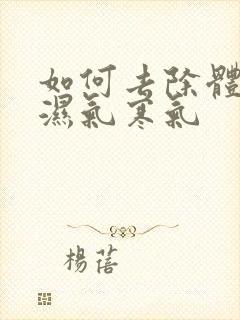 如何去除體
濕氣寒氣
楊蓓